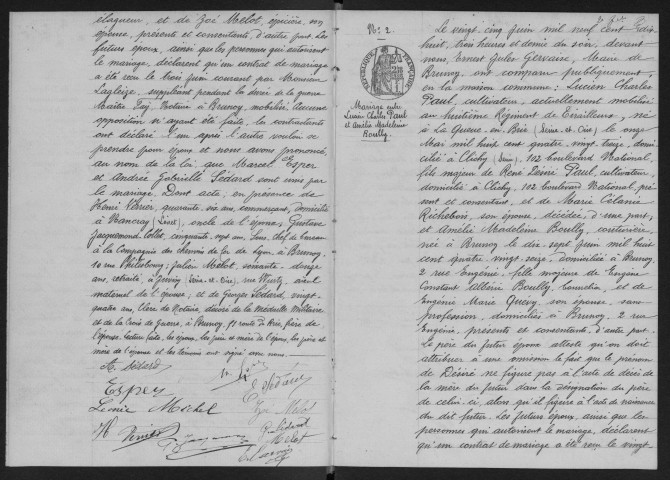 élagueur, et de Zoé Mélot, épicière, son
épouse, présents et consentants, d'autre part. Les
futurs époux, ainsi que les personnes qui autorisent
le mariage, déclarent qu'un contrat de mariage
a été reçu le trois juin courant par Monsieur
suppléant pendant la durée de la guerre
Maître Notaire à Brunoy, mobilisé. Aucune
opposition n'ayant été faite, les contractants
ont déclaré l'un après l'autre vouloir se
prendre pour époux et nous avons prononcé,
au nom de la loi, que Marcel Esper
et Andrée Gabrielle Sédard sont unis par
le mariage. Dont acte, en présence de
Henri quarante six ans, commerçant, domicilié
à oncle de l'époux; Gustave
Jacquemond Collet, cinquante sept ans, Sous chef de bureau
à la Compagnie des chemins de fer de Lyon, à Brunoy,
10 rue Philisbourg; Julien Mélot, soixante douze
ans, retraité, à (Seine et Oise), rue aïeul
maternel de l'épouse; et de Georges Sédard, vingt
quatre ans, clerc de Notaire, décoré de la Médaille Militaire
et de la Croix de Guerre, à Brunoy, route de Brie, frère de
l'épouse. Lecture faite, les époux, les père et mère de l'époux, les père et
mère de l'épouse et les témoins ont signé avec nous.
A. Sédard
Esper
Léonie Michel
Mélot
N° 2
RÉPUBLIQUE FRANÇAISE
Mariage entre
Lucien Charles Paul
et Amélie Madeleine
Boully
Le vingt cinq juin mil neuf cent dix
huit, trois heures et demie du soir, devant
nous, Ernest Jules Gervaise, Maire de
Brunoy, ont comparu publiquement,
en la maison commune: Lucien Charles
Paul, cultivateur, actuellement mobilisé
au huitième Régiment de Tirailleurs, né
à La Queue en Brie (Seine et Oise) le onze
Mai mil huit cent quatre vingt treize, domi-
cilié à Clichy (Seine), 102 boulevard National,
fils majeur de René Désiré Paul, cultivateur,
domicilié à Clichy, 102 boulevard National, pré-
sent et consentant, et de Marie Célanie
Richebois, son épouse, décédée, d'une part;
et Amélie Madeleine Boully, couturière,
née à Brunoy le dix sept Juin mil huit
cent quatre vingt seize, domiciliée à Brunoy,
2 rue Eugénie, fille majeure de Eugène
Constant Boully, et de
Eugénie Marie son épouse, sans
profession, domiciliés à Brunoy, 2 rue
Eugénie, présents et consentants, d'autre part.
Le père du futur époux atteste qu'on doit
attribuer à une omission le fait que le prénom
de Désiré ne figure pas à l'acte de décès de
la mère du futur dans la désignation du père
de celui-ci, alors qu'il figure à l'acte de naissance
du dit futur. Les futurs époux, ainsi que les
personnes qui autorisent le mariage, déclarent
qu'un contrat de mariage a été reçu le vingt